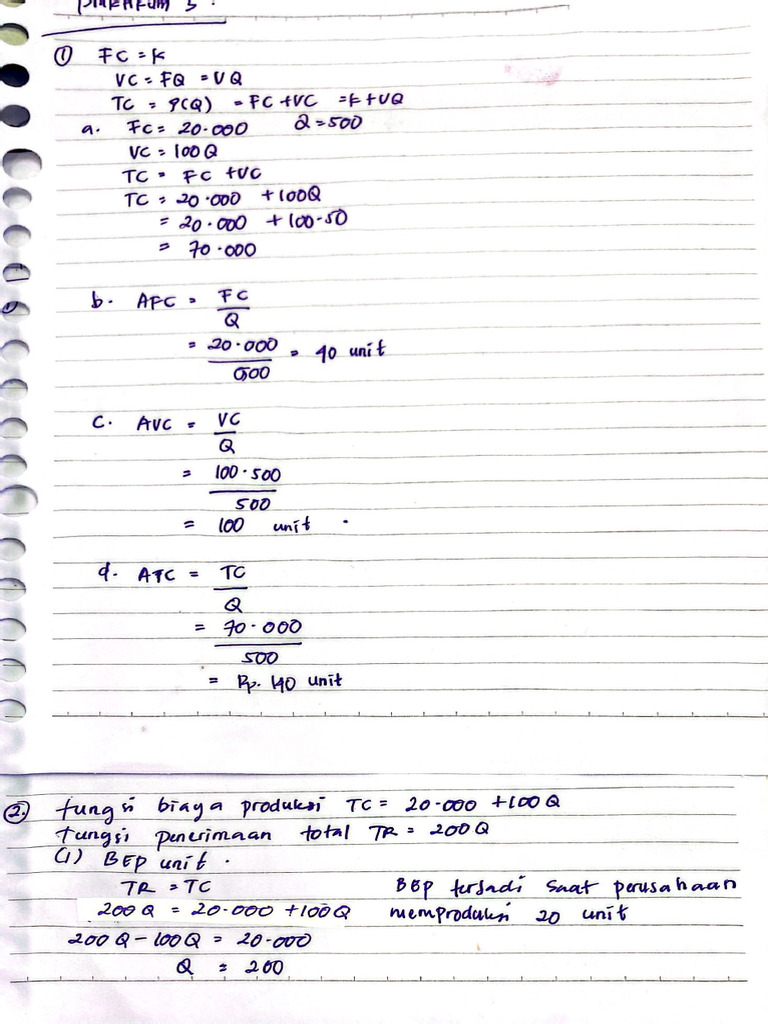 ① FC = K
VC = FQ = VQ
TC = φ(Q) = FC + VC = K + VQ
a. FC = 20.000 Q = 500
VC = 100Q
TC = FC + VC
TC = 20.000 + 100Q
= 20.000 + 100.50
= 70.000
b. AFC = FC
Q
= 20.000 = 40 unit
500
c. AVC = VC
Q
= 100.500
500
= 100 unit .
d. ATC = TC
Q
= 70.000
500
= Rp. 140 unit
②. fungsi biaya produksi TC = 20.000 + 100Q
fungsi penerimaan total TR = 200Q
(1) BEP unit .
TR = TC BEP terjadi saat perusahaan
200Q = 20.000 + 100Q memproduksi 20 unit
200Q - 100Q = 20.000
Q = 200